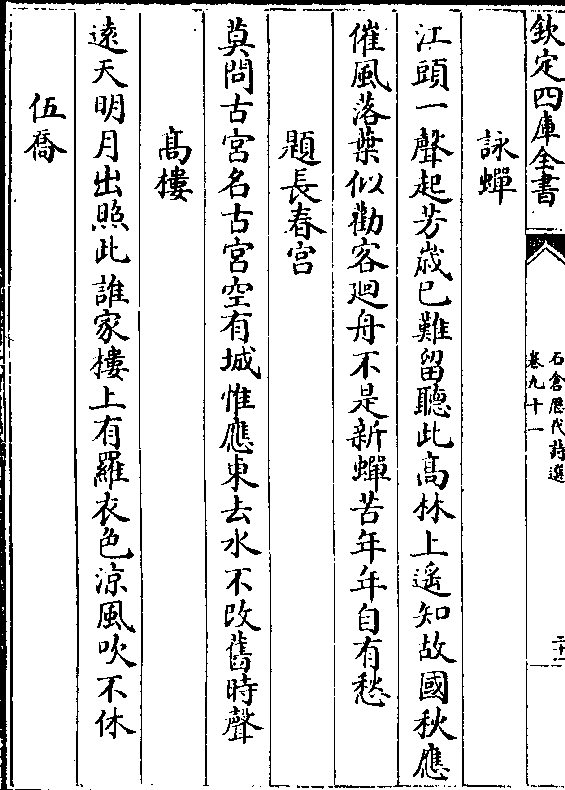 欽定四庫全書
石倉歴代詩選
卷九十一
二十二
詠蟬
江頭一聲起芳歲已難留聽此高林上遥知故國秋應
催風落葉似勸客廻舟不是新蟬苦年年自有愁
題長春宫
莫問古宫名古宫空有城惟應東去水不改舊時聲
髙樓
遠天明月出照此誰家樓上有羅衣色涼風吹不休
伍喬